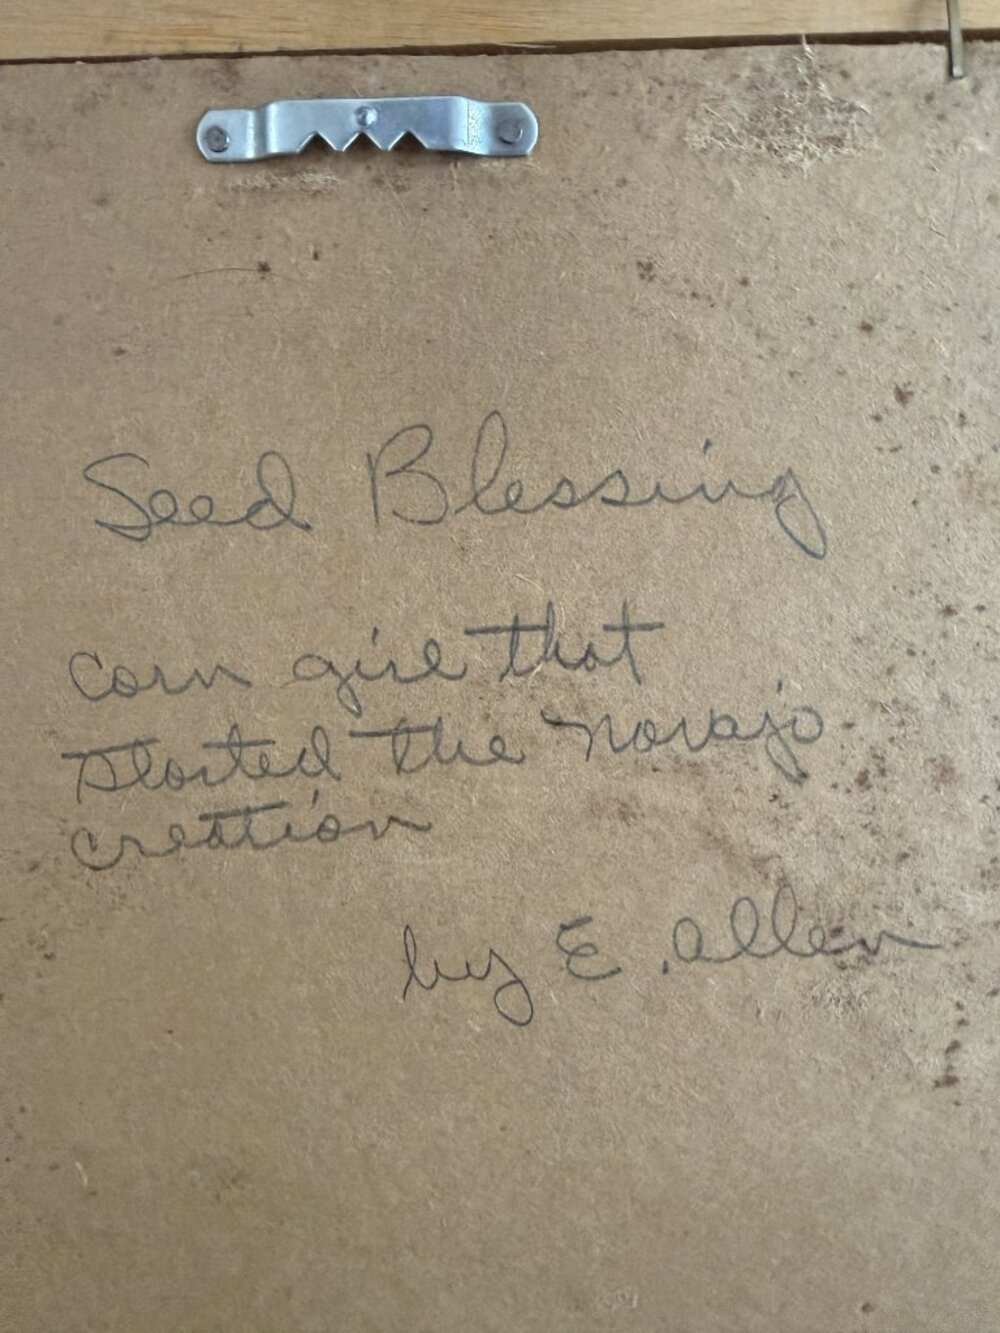 Seed Blessing
corn girl that
started the navajo
creation
by E. Allen